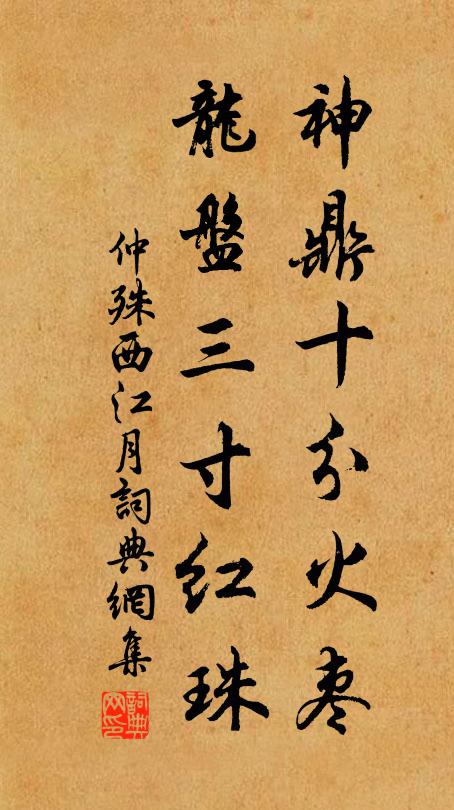 神鼎十分火棗
龍盤三寸紅珠
仲殊西江月詞典網集
詞典网印